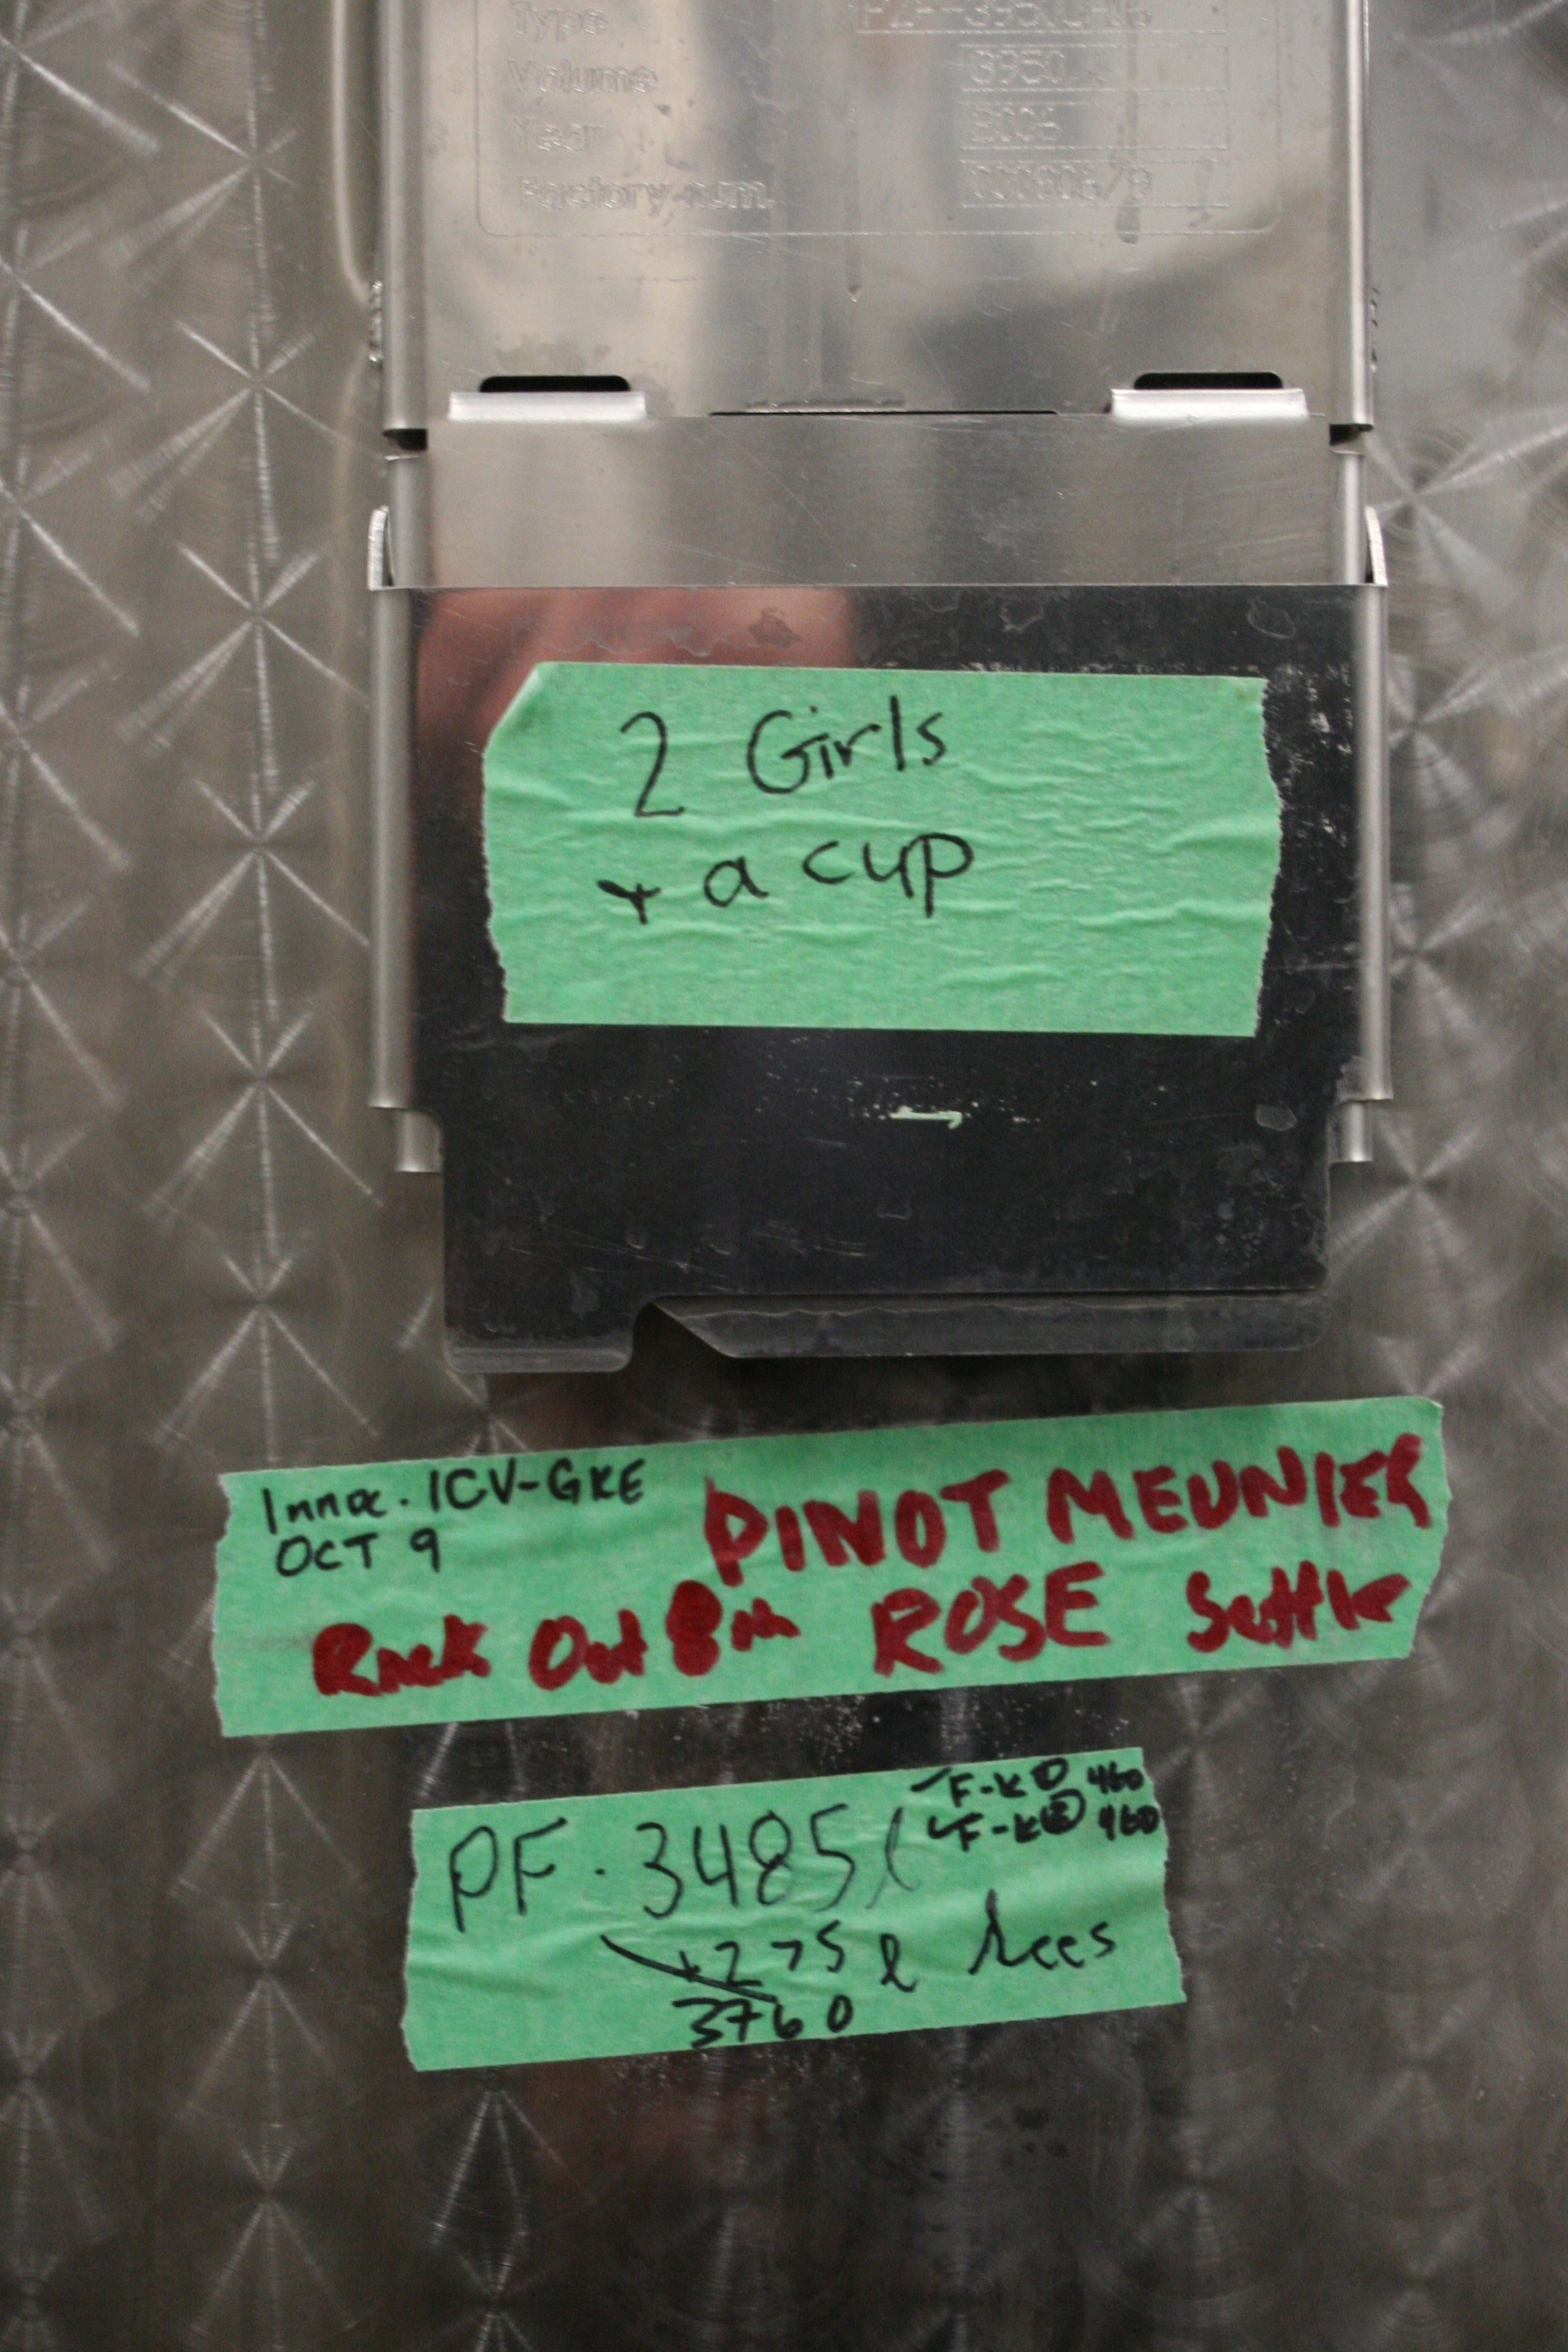 Type
Volume
Year 2006
Factory num.
2 Girls
+ a cup
Innoc. ICV-GRE
OCT 9
PINOT MEUNIER
Rack Oct 8th ROSE Settle
PF. 3485 l
F-K ① 460
F-K ② 460
+275 l Lees
3760